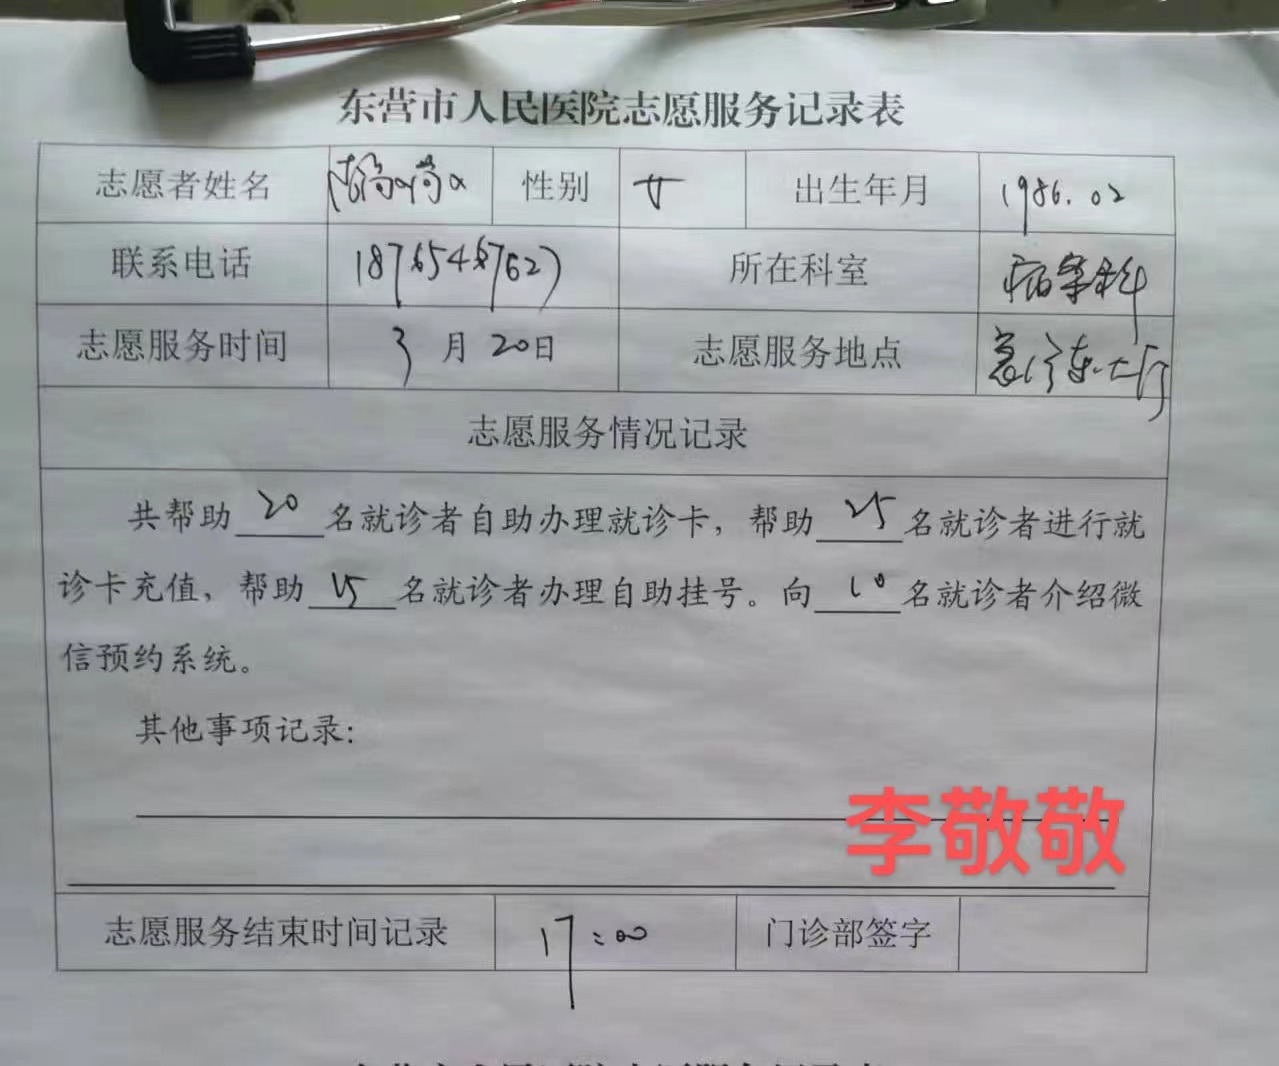 东营市人民医院志愿服务记录表
志愿者姓名 性别 女 出生年月 1986.02
联系电话 所在科室 病案科
志愿服务时间 3月20日 志愿服务地点 急诊东大厅
志愿服务情况记录
共帮助20名就诊者自助办理就诊卡，帮助25名就诊者进行就
诊卡充值，帮助15名就诊者办理自助挂号。向10名就诊者介绍微
信预约系统。
其他事项记录：
李敬敬
志愿服务结束时间记录 17:00 门诊部签字